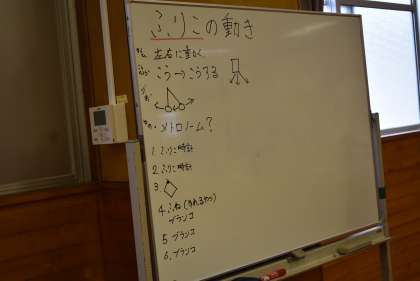 ふりこの動き
左右に動く
こう→こうする
メトロノーム？
1. ふりこ時計
2. ふりこ時計
3.
4. ふね
ブランコ
5. ブランコ
6. ブランコ